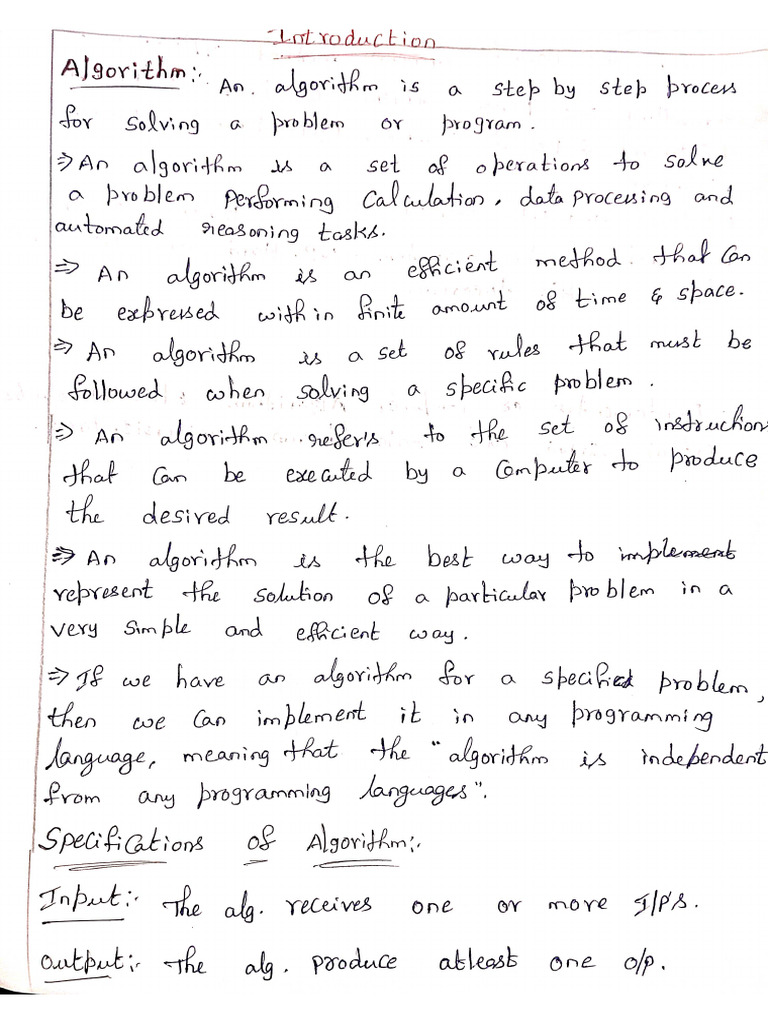 Introduction
Algorithm:- An algorithm is a step by step process
for solving a problem or program.
⇒ An algorithm is a set of operations to solve
a problem Performing Calculation, data processing and
automated reasoning tasks.
⇒ An algorithm is an efficient method that can
be expressed within finite amount of time & space.
⇒ An algorithm is a set of rules that must be
followed when solving a specific problem.
⇒ An algorithm refer's to the set of instructions
that can be executed by a computer to produce
the desired result.
⇒ An algorithm is the best way to implement
represent the solution of a particular problem in a
very simple and efficient way.
⇒ If we have an algorithm for a specified problem,
then we can implement it in any programming
language, meaning that the "algorithm is independent
from any programming languages".
Specifications of Algorithm:-
Input:- The alg. receives one or more I/P's.
Output:- The alg. produce atleast one o/p.